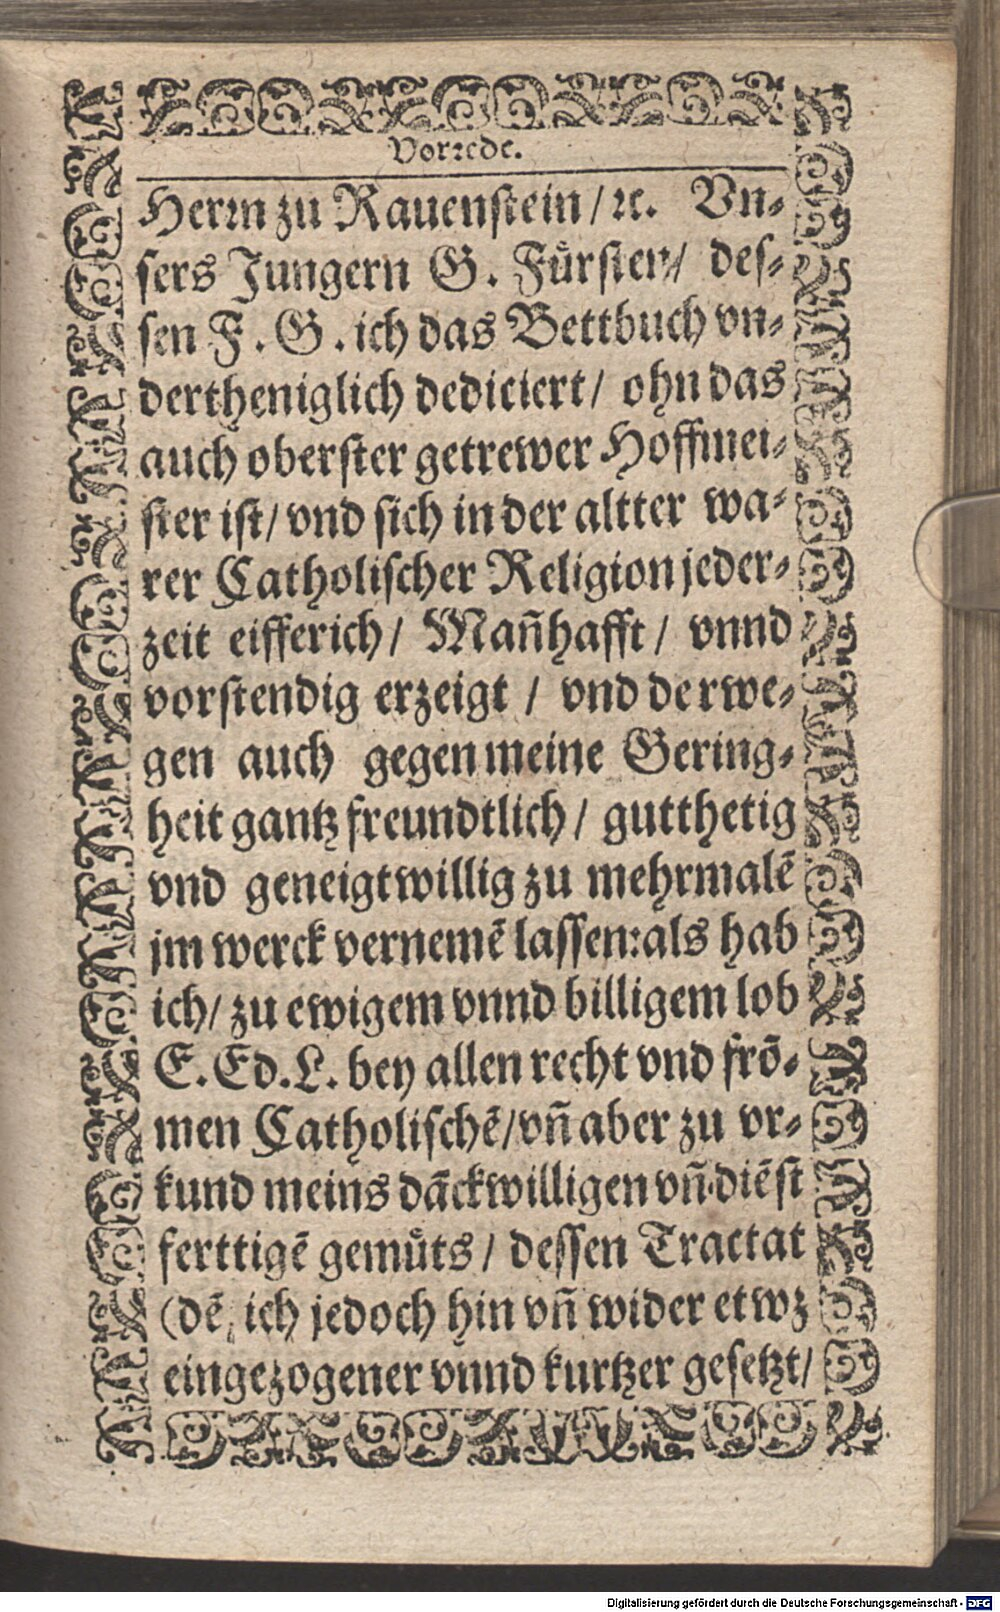 Vorꝛede.
Herꝛn zu Rauenſtein / ꝛc. Vn⸗
ſers Jungern G. Fuͤrſten / deſ⸗
ſen F. G. ich das Bettbuch vn⸗
dertheniglich dediciert / ohn das
auch oberſter getrewer Hoffmei⸗
ſter iſt / vnd ſich in der altter wa⸗
rer Catholiſcher Religion jeder⸗
zeit eifferich / Mañhafft / vnnd
vorſtendig erzeigt / vnd derwe⸗
gen auch gegen meine Gering⸗
heit gantz freundtlich / gutthetig
vnd geneigtwillig zu mehrmalẽ
jm werck vernemẽ laſſen: als hab
ich / zu ewigem vnnd billigem lob
E. Ed. L. bey allen recht vnd frõ⸗
men Catholiſchẽ / vñ aber zu vr⸗
kund meins dãckwilligen vñ diẽſt
ferttigẽ gemuͤts / deſſen Tractat
(dẽ ich jedoch hin vñ wider etwz
eingezogener vnnd kurtzer geſetzt /
Digitalisierung gefördert durch die Deutsche Forschungsgemeinschaft - DFG